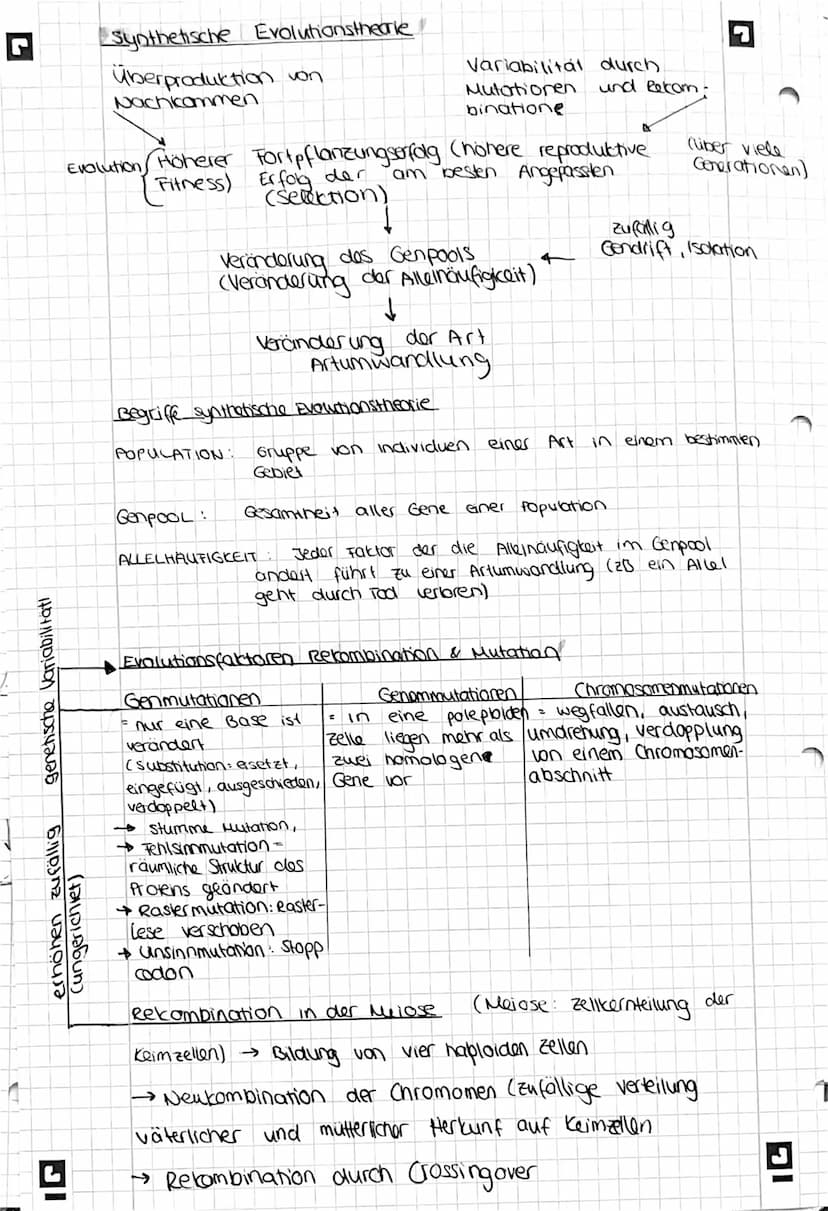 Synthetische Evolutionstheorie
Überproduktion von
Nachkommen
Variabilität durch
Mutationen und Rekom-
binatione
Evolution
(Höherer Fortpflanzungserfolg (höhere reproduktive
Fitness) Erfolg der am besten Angepassten
(Selektion)
(über viele
Generationen)
Veränderung des Genpools
(Veränderung der Allelhäufigkeit)
zufällig
Gendrift, Isolation
Veränderung der Art
Artumwandlung
Begriffe synthetische Evolutionstheorie
POPULATION: Gruppe von Individuen einer Art in einem bestimmten
Gebiet
GENPOOL: Gesamtheit aller Gene einer Population
ALLELHÄUFIGKEIT: Jeder Faktor der die Allelhäufigkeit im Genpool
ändert führt zu einer Artumwandlung (zB ein Allel
geht durch Tod verloren)
erhöhen zufällig genetische Variabilität!
(ungerichtet)
Evolutionsfaktoren Rekombination & Mutation
Genmutationen
= nur eine Base ist
verändert
(Substitution: ersetzt,
eingefügt, ausgeschieden,
verdoppelt)
→ stumme Mutation,
→ Fehlsinnmutation =
räumliche Struktur des
Proteins geändert
→ Rastermutation: Raster-
lese verschoben
→ Unsinnmutation: Stopp
codon
Genommutationen
= in eine poleploiden
Zelle liegen mehr als
zwei homologene
Gene vor
Chromosomenmutationen
= wegfallen, austausch,
umdrehung, verdopplung
von einem Chromosomen-
abschnitt
Rekombination in der Meiose (Meiose: Zellkernteilung der
Keimzellen) → Bildung von vier haploiden Zellen
→ Neukombination der Chromomen (zufällige verteilung
väterlicher und mütterlicher Herkunf auf Keimzellen
→ Rekombination durch Crossingover